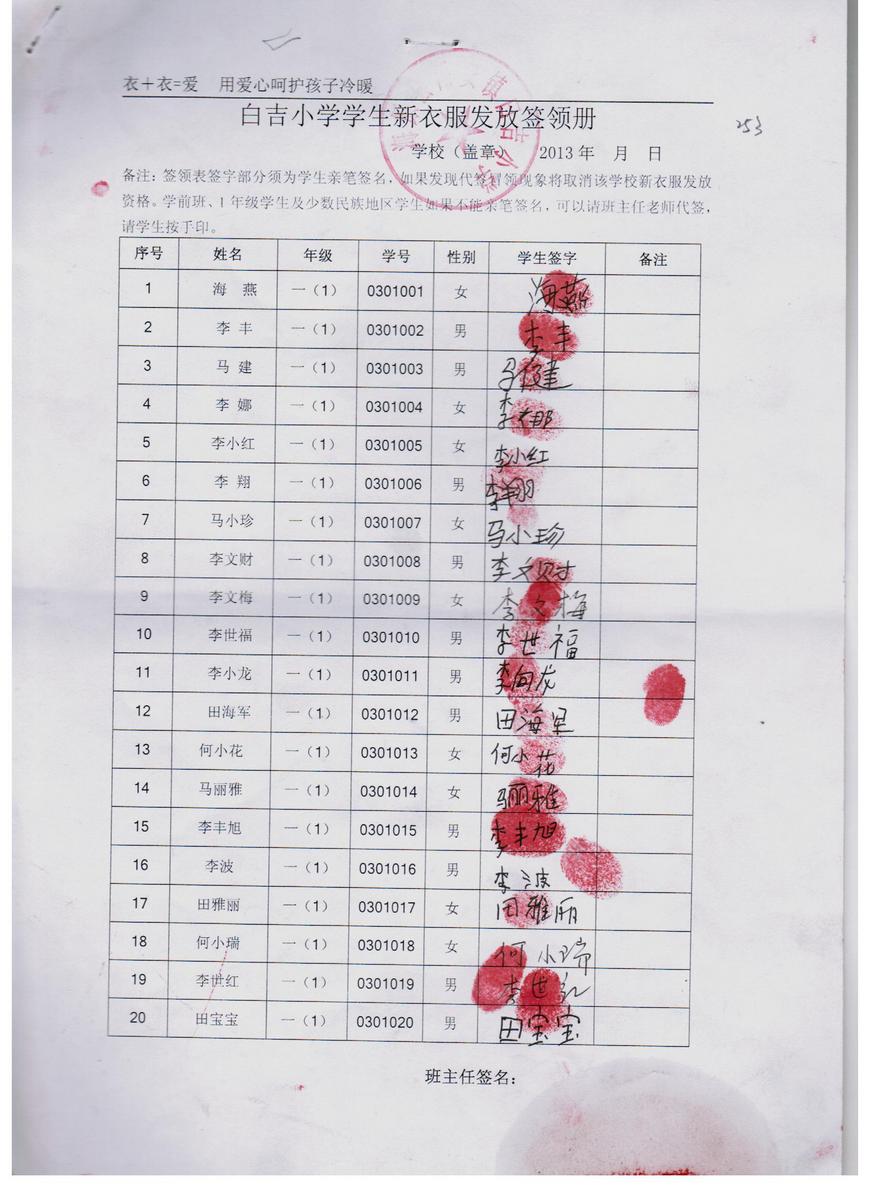 衣＋衣=爱 用爱心呵护孩子冷暖
白吉小学学生新衣服发放签领册
253
学校（盖章） 2013 年 月 日
备注：签领表签字部分须为学生亲笔签名，如果发现代签冒领现象将取消该学校新衣服发放
资格。学前班、1 年级学生及少数民族地区学生如果不能亲笔签名，可以请班主任老师代签，
请学生按手印。
序号 姓名 年级 学号 性别 学生签字 备注
1 海 燕 一（1） 0301001 女 海燕
2 李 丰 一（1） 0301002 男 李丰
3 马 建 一（1） 0301003 男 马健
4 李 娜 一（1） 0301004 女 李娜
5 李小红 一（1） 0301005 女 李小红
6 李 翔 一（1） 0301006 男 李翔
7 马小珍 一（1） 0301007 女 马小珍
8 李文财 一（1） 0301008 男 李文财
9 李文梅 一（1） 0301009 女 李文梅
10 李世福 一（1） 0301010 男 李世福
11 李小龙 一（1） 0301011 男 李 龙
12 田海军 一（1） 0301012 男 田海
13 何小花 一（1） 0301013 女 何小花
14 马丽雅 一（1） 0301014 女 马丽雅
15 李丰旭 一（1） 0301015 男 李丰旭
16 李波 一（1） 0301016 男 李波
17 田雅丽 一（1） 0301017 女 田雅丽
18 何小瑞 一（1） 0301018 女 何小瑞
19 李世红 一（1） 0301019 男 李世红
20 田宝宝 一（1） 0301020 男 田宝宝
班主任签名：